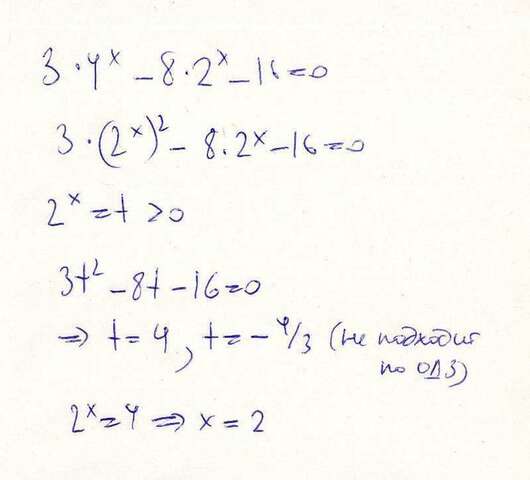 3·4ˣ – 8·2ˣ – 16 = 0
3·(2ˣ)² – 8·2ˣ – 16 = 0
2ˣ = t > 0
3t² – 8t – 16 = 0
⇒ t = 4, t = – 4/3 (не подходит
по ОДЗ)
2ˣ = 4 ⇒ x = 2